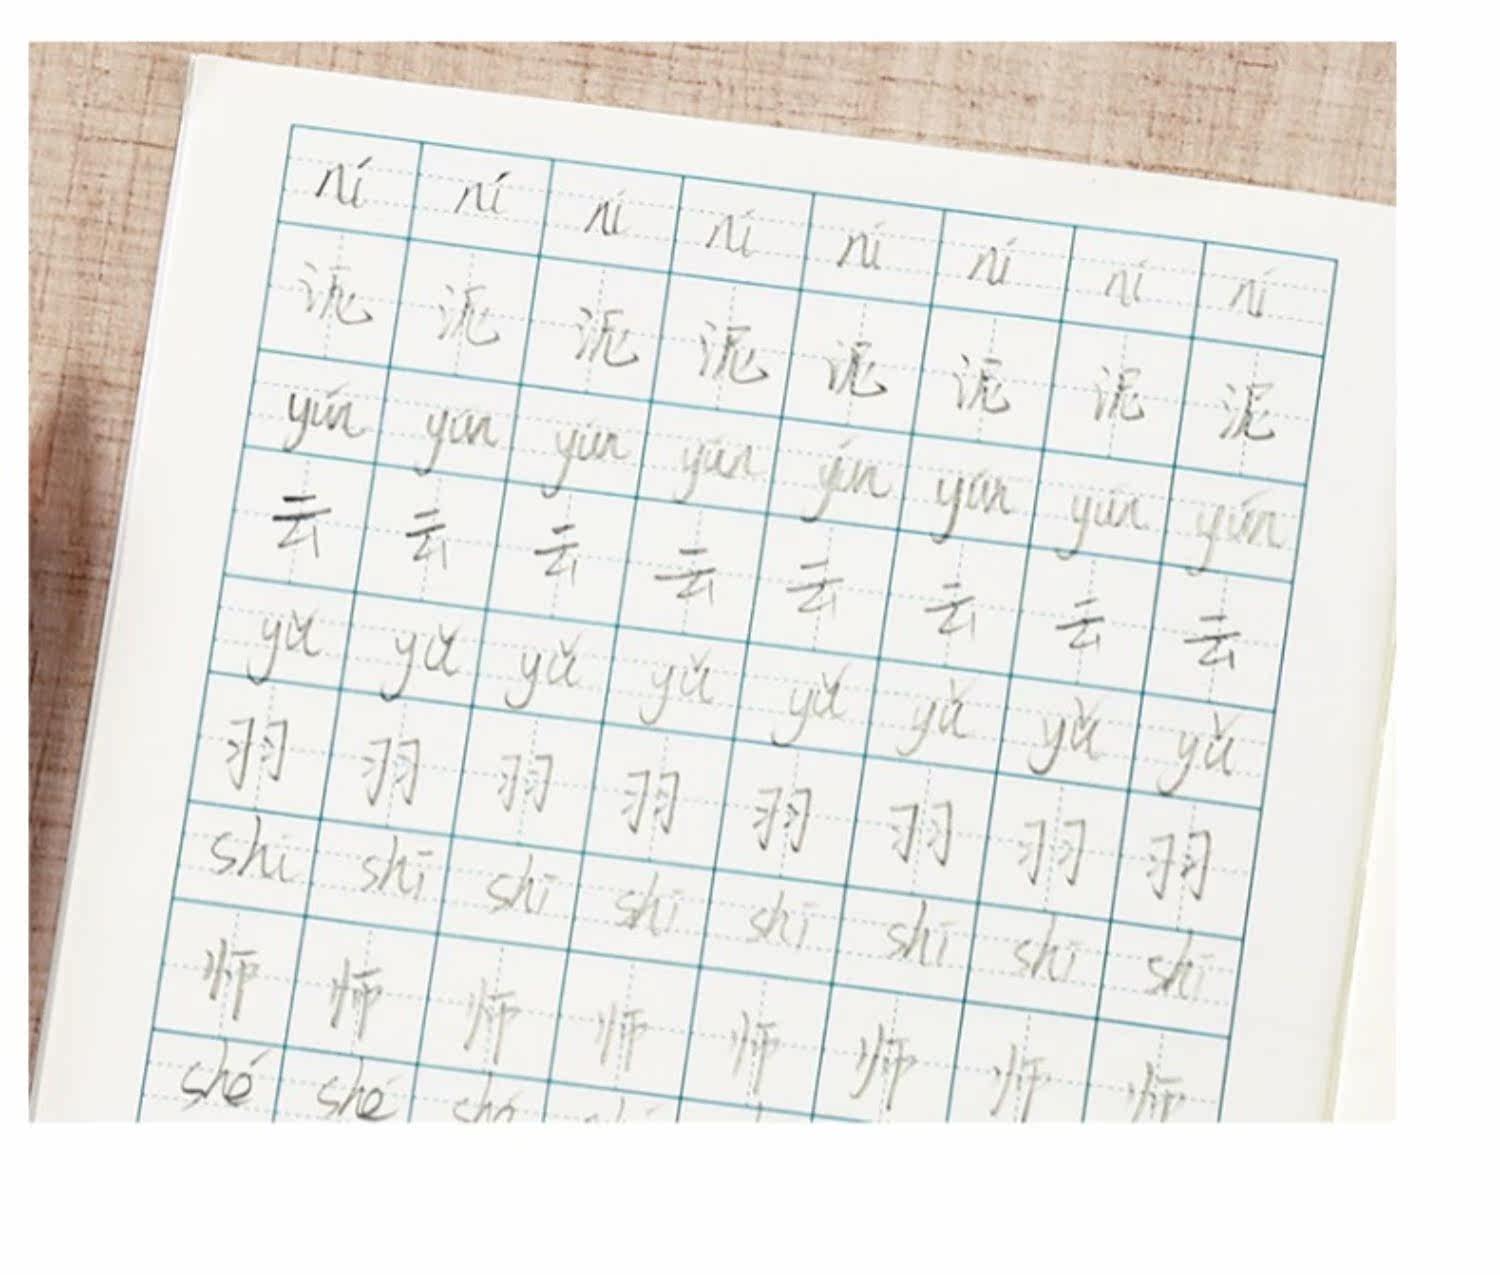 ní ní ní ní ní ní ní ní
泥 泥 泥 泥 泥 泥 泥 泥
yún yún yún yún yún yún yún yún
云 云 云 云 云 云 云 云
yǔ yǔ yǔ yǔ yǔ yǔ yǔ yǔ
羽 羽 羽 羽 羽 羽 羽 羽
shī shī shī shī shī shī shī shī
师 师 师 师 师 师 师 师
shé shé